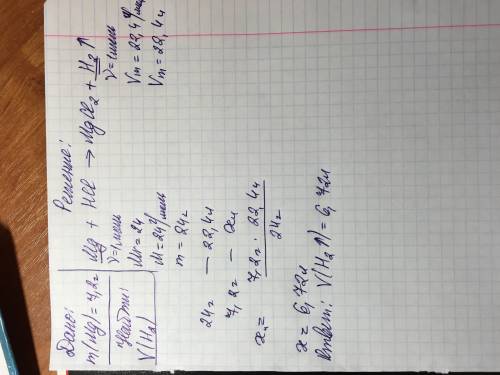 Дано:
m(Mg) = 7,2г
Найти:
V(H₂)
Решение:
Mg + HCl → MgCl₂ + H₂↑
ν=1моль ν=1моль
Mr = 24 Vm = 22,4 л/моль
M = 24 г/моль Vm = 22,4л
m = 24г
24г – 22,4л
7,2г – xл
x = 7,2г · 22,4л / 24г
x = 6,72л
Ответ: V(H₂↑) = 6,72л